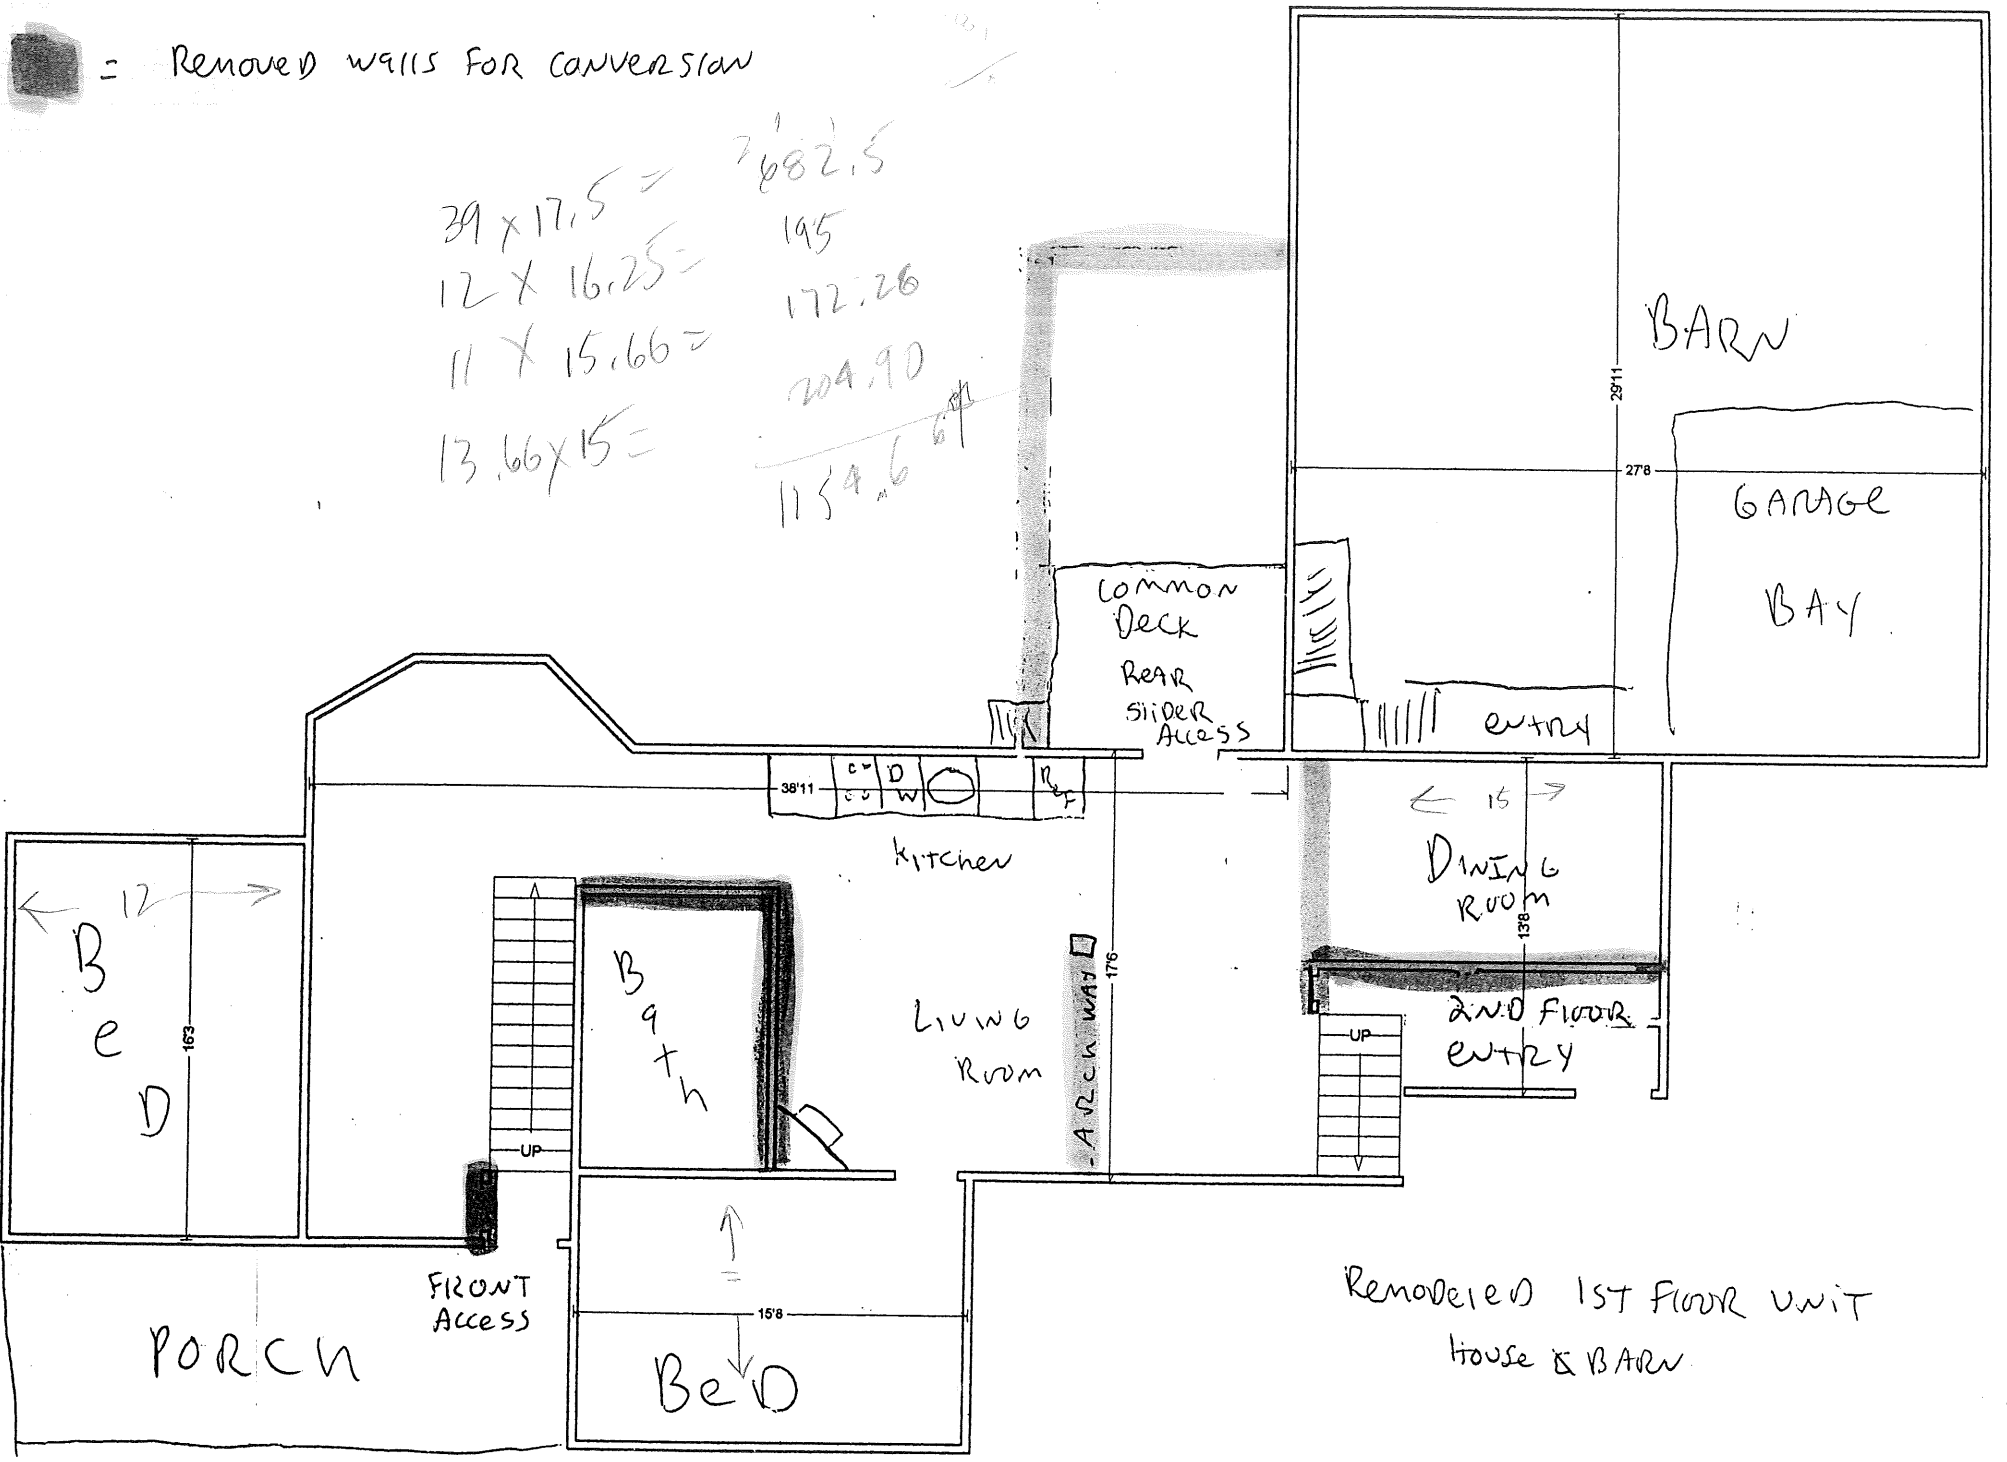 = Removed walls for conversion
39 x 17.5 = 682.5
12 x 16.25 = 195
11 x 15.66 = 172.26
13.66 x 15 = 204.90
1154.66
BARN
29'11
27'8
GARAGE
BAY
COMMON
DECK
REAR
SliDER
ACCESS
ENTRY
38'11
D
W
REF
Kitchen
15
DINING
ROOM
13'8
12
BeD
16'3
UP
Bath
LIVING
ROOM
ARCHWAY
17'6
2ND FLOOR
ENTRY
UP
FRONT
ACCESS
PORCH
15'8
BeD
REMODELED 1ST FLOOR UNIT
House & BARN